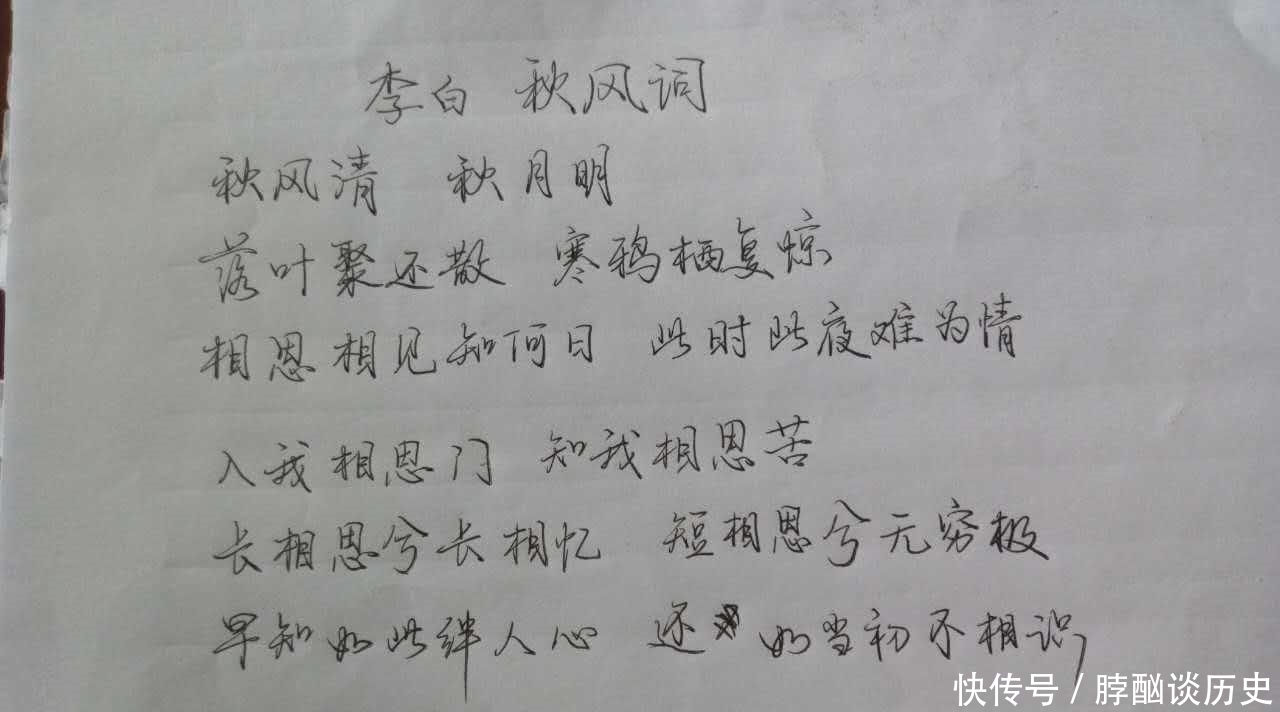 李白 秋风词
秋风清 秋月明
落叶聚还散 寒鸦栖复惊
相思相见知何日 此时此夜难为情
入我相思门 知我相思苦
长相思兮长相忆 短相思兮无穷极
早知如此绊人心 还如当初不相识
快传号 / 脖酗谈历史